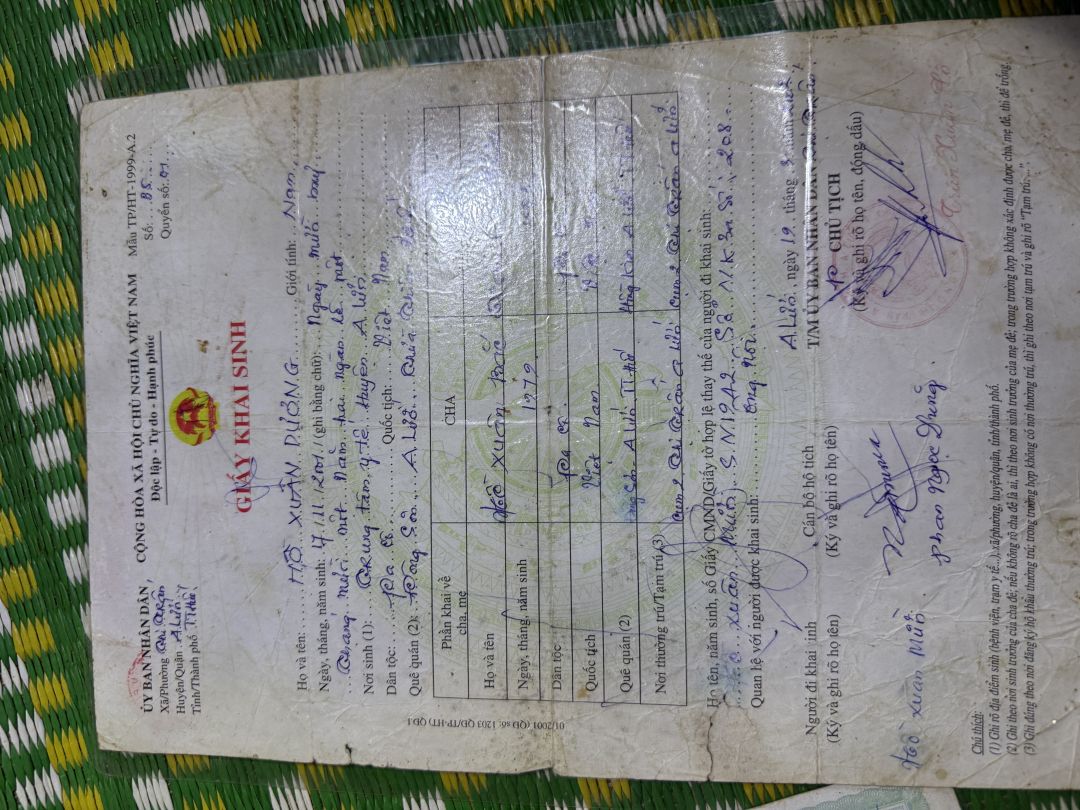 ỦY BAN NHÂN DÂN
Xã/Phường Thị Trấn
Huyện/Quận A Lưới
Tỉnh/Thành phố TT Huế
CỘNG HÒA XÃ HỘI CHỦ NGHĨA VIỆT NAM
Độc lập - Tự do - Hạnh phúc
Mẫu TP/HT-1999-A.2
Số: 85
Quyển số: 01
GIẤY KHAI SINH
Họ và tên: HỒ XUÂN DƯƠNG Giới tính: Nam
Ngày, tháng, năm sinh: 17/11/2001 (ghi bằng chữ): Ngày mười bảy
tháng mười một năm hai ngàn lẻ một
Nơi sinh (1): Trung tâm y tế huyện A Lưới
Dân tộc: Pa cô Quốc tịch: Việt Nam
Quê quán (2): Hồng A Lưới Thừa Thiên Huế
Phần khai về cha, mẹ
CHA
Họ và tên Hồ Xuân Bắc
Ngày, tháng, năm sinh 1979
Dân tộc Pa cô
Quốc tịch Việt Nam
Quê quán (2) A Lưới TT Huế Hồng A Lưới TT Huế
Nơi thường trú/Tạm trú (3) Cụm 2 Thị Trấn A Lưới Cụm 2 Thị Trấn A Lưới
Họ tên, năm sinh, số Giấy CMND/Giấy tờ hợp lệ thay thế của người đi khai sinh:
Hồ Xuân S.N 1942 Số 208
Quan hệ với người được khai sinh: Ông nội
A Lưới, ngày 19 tháng 3 năm
Người đi khai sinh
(Ký và ghi rõ họ tên)
Cán bộ hộ tịch
(Ký và ghi rõ họ tên)
T/M ỦY BAN NHÂN DÂN Thị Trấn
CHỦ TỊCH
(Ký và ghi rõ họ tên, đóng dấu)
Hồ Xuân
Phan Ngọc Dũng
Trần Xuân
Chú thích:
(1) Ghi rõ địa điểm sinh (bệnh viện, trạm y tế...), xã/phường, huyện/quận, tỉnh/thành phố.
(2) Ghi theo nơi sinh trưởng của cha đẻ; nếu không rõ cha đẻ là ai, thì theo nơi sinh trưởng của mẹ đẻ; trong trường hợp không xác định được cha, mẹ đẻ, thì để trống.
(3) Ghi đúng theo nơi đăng ký hộ khẩu thường trú; trong trường hợp không có nơi thường trú, thì ghi theo nơi tạm trú và ghi rõ "Tạm trú: ..."
01/2001 (QĐ số: 1203 QĐ/TP-HT) QĐ1